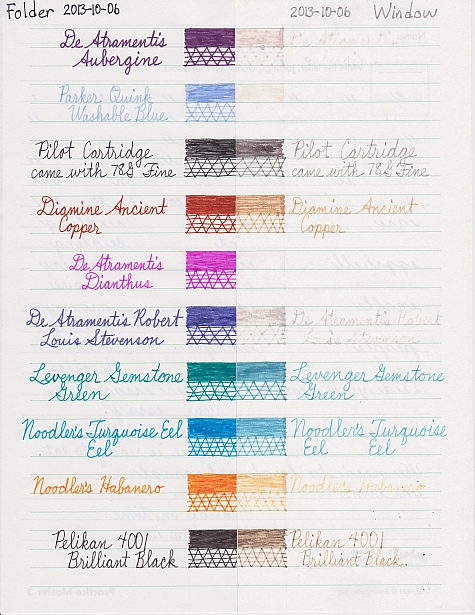 Folder 2013-10-06 2013-10-06 Window
De Atramentis
Aubergine
Parker Quink
Washable Blue
Pilot Cartridge Pilot Cartridge
came with 78G Fine came with 78G Fine
Diamine Ancient Diamine Ancient
Copper Copper
De Atramentis
Dianthus
De Atramentis Robert De Atramentis Robert
Louis Stevenson Louis Stevenson
Levenger Gemstone Levenger Gemstone
Green Green
Noodler's Turquoise Eel Noodler's Turquoise Eel
Eel Eel Eel
Noodler's Habanero Noodler's Habanero
Pelikan 4001 Pelikan 4001
Brilliant Black Brilliant Black.